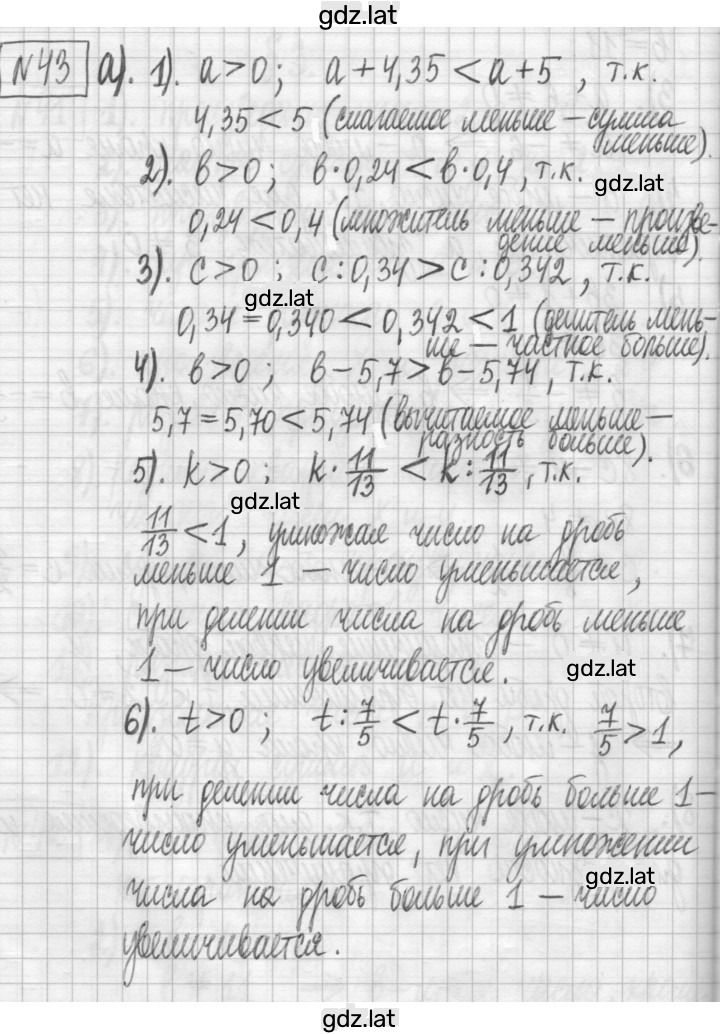 gdz.lat
№43 а). 1). a > 0; a + 4,35 < a + 5, т.к.
4,35 < 5 (слагаемое меньше – сумма
меньше).
2). b > 0; b · 0,24 < b · 0,4, т.к.
gdz.lat
0,24 < 0,4 (множитель меньше – произве-
дение меньше).
3). c > 0; c : 0,34 > c : 0,342, т.к.
gdz.lat
0,34 = 0,340 < 0,342 < 1 (делитель мень-
ше – частное больше).
4). b > 0; b – 5,7 > b – 5,74, т.к.
5,7 = 5,70 < 5,74 (вычитаемое меньше –
разность больше).
5). k > 0; k · 11/13 < k : 11/13, т.к.
gdz.lat
11/13 < 1, умножая число на дробь
меньше 1 – число уменьшается,
при делении числа на дробь меньше
1 – число увеличивается.
gdz.lat
6). t > 0; t : 7/5 < t · 7/5, т.к. 7/5 > 1,
при делении числа на дробь больше 1 –
число уменьшается, при умножении
gdz.lat
числа на дробь больше 1 – число
увеличивается.
gdz.lat